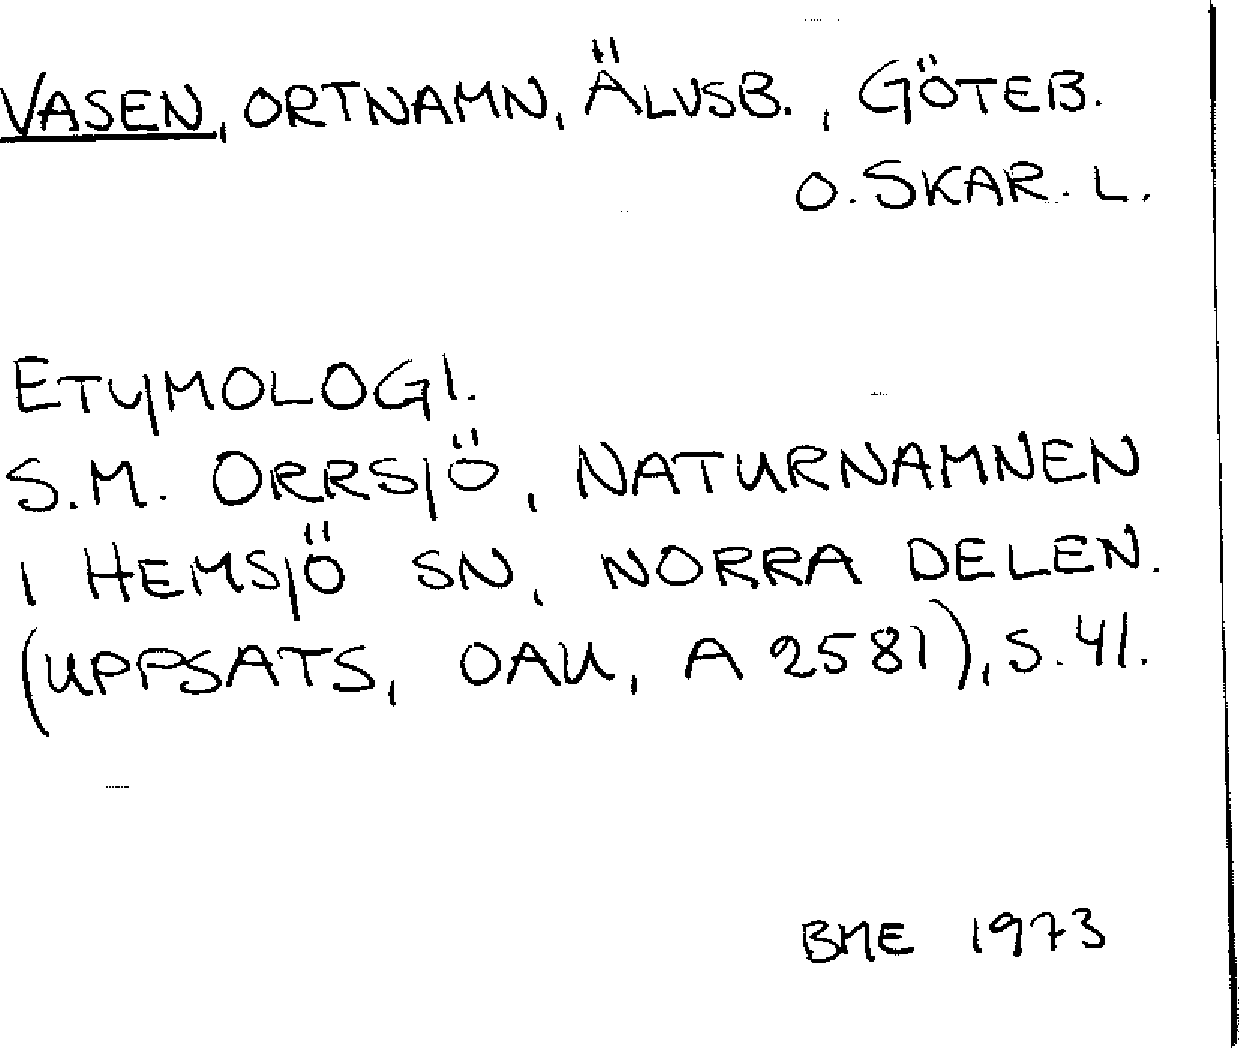 VASEN, ORTNAMN, ÄLVSB., GÖTEB.
O. SKAR. L.
ETYMOLOGI.
S.M. ORRSJÖ, NATURNAMNEN
I HEMSJÖ SN, NORRA DELEN.
(UPPSATS, OAU, A 2581), S. 41.
BME 1973